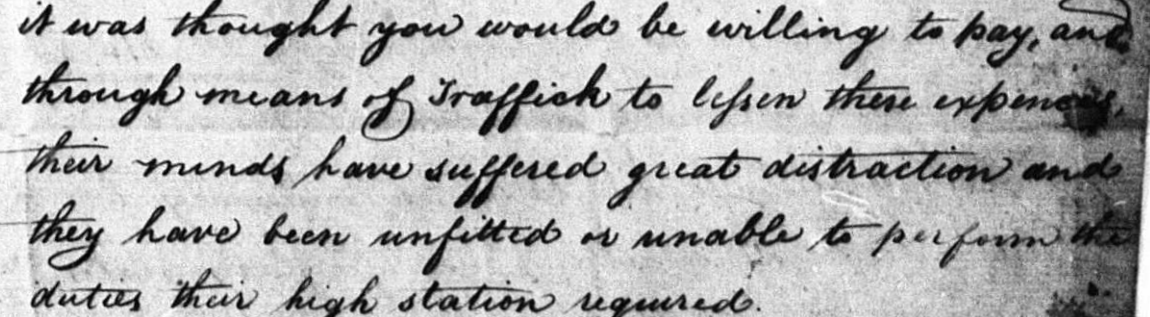 it was thought you would be willing to pay, and
through means of Traffick to lessen these expences,
their minds have suffered great distraction and
they have been unfitted or unable to perform the
duties their high station required.